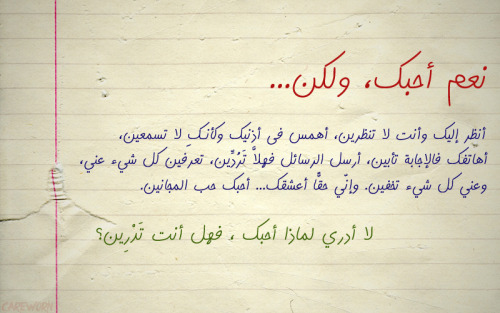 نعم أحبك، ولكن...
أنظر إليك وأنت لا تنظرين، أهمس في أذنيك وكأنكِ لا تسمعين،
أهاتفك فالإجابة تأبين، أرسل الرسائل فهلاَّ تَرُدِّين، تعرفين كل شيء عني،
وعني كل شيء تخفين. وإنّي حقًّا أعشقك... أحبك حب المجانين.
لا أدري لماذا أحبك ، فهل أنت تَدْرِين؟
CAREWORN